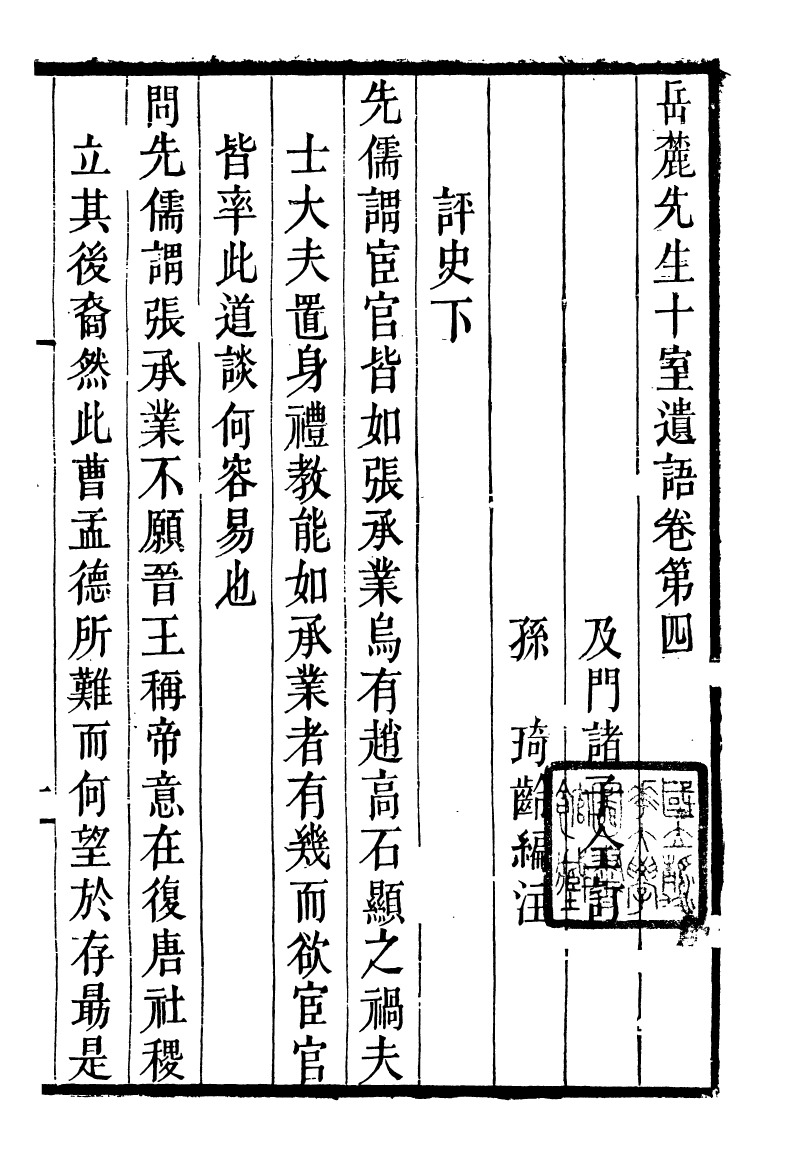 岳麓先生十室遺語卷第四
及門諸子仝訂
孫　琦齡編注
評史下
先儒謂宦官皆如張承業烏有趙高石顯之禍夫
士大夫置身禮教能如承業者有幾而欲宦官
皆率此道談何容易也
問先儒謂張承業不願晉王稱帝意在復唐社稷
立其後裔然此曹孟德所難而何望於存朂是